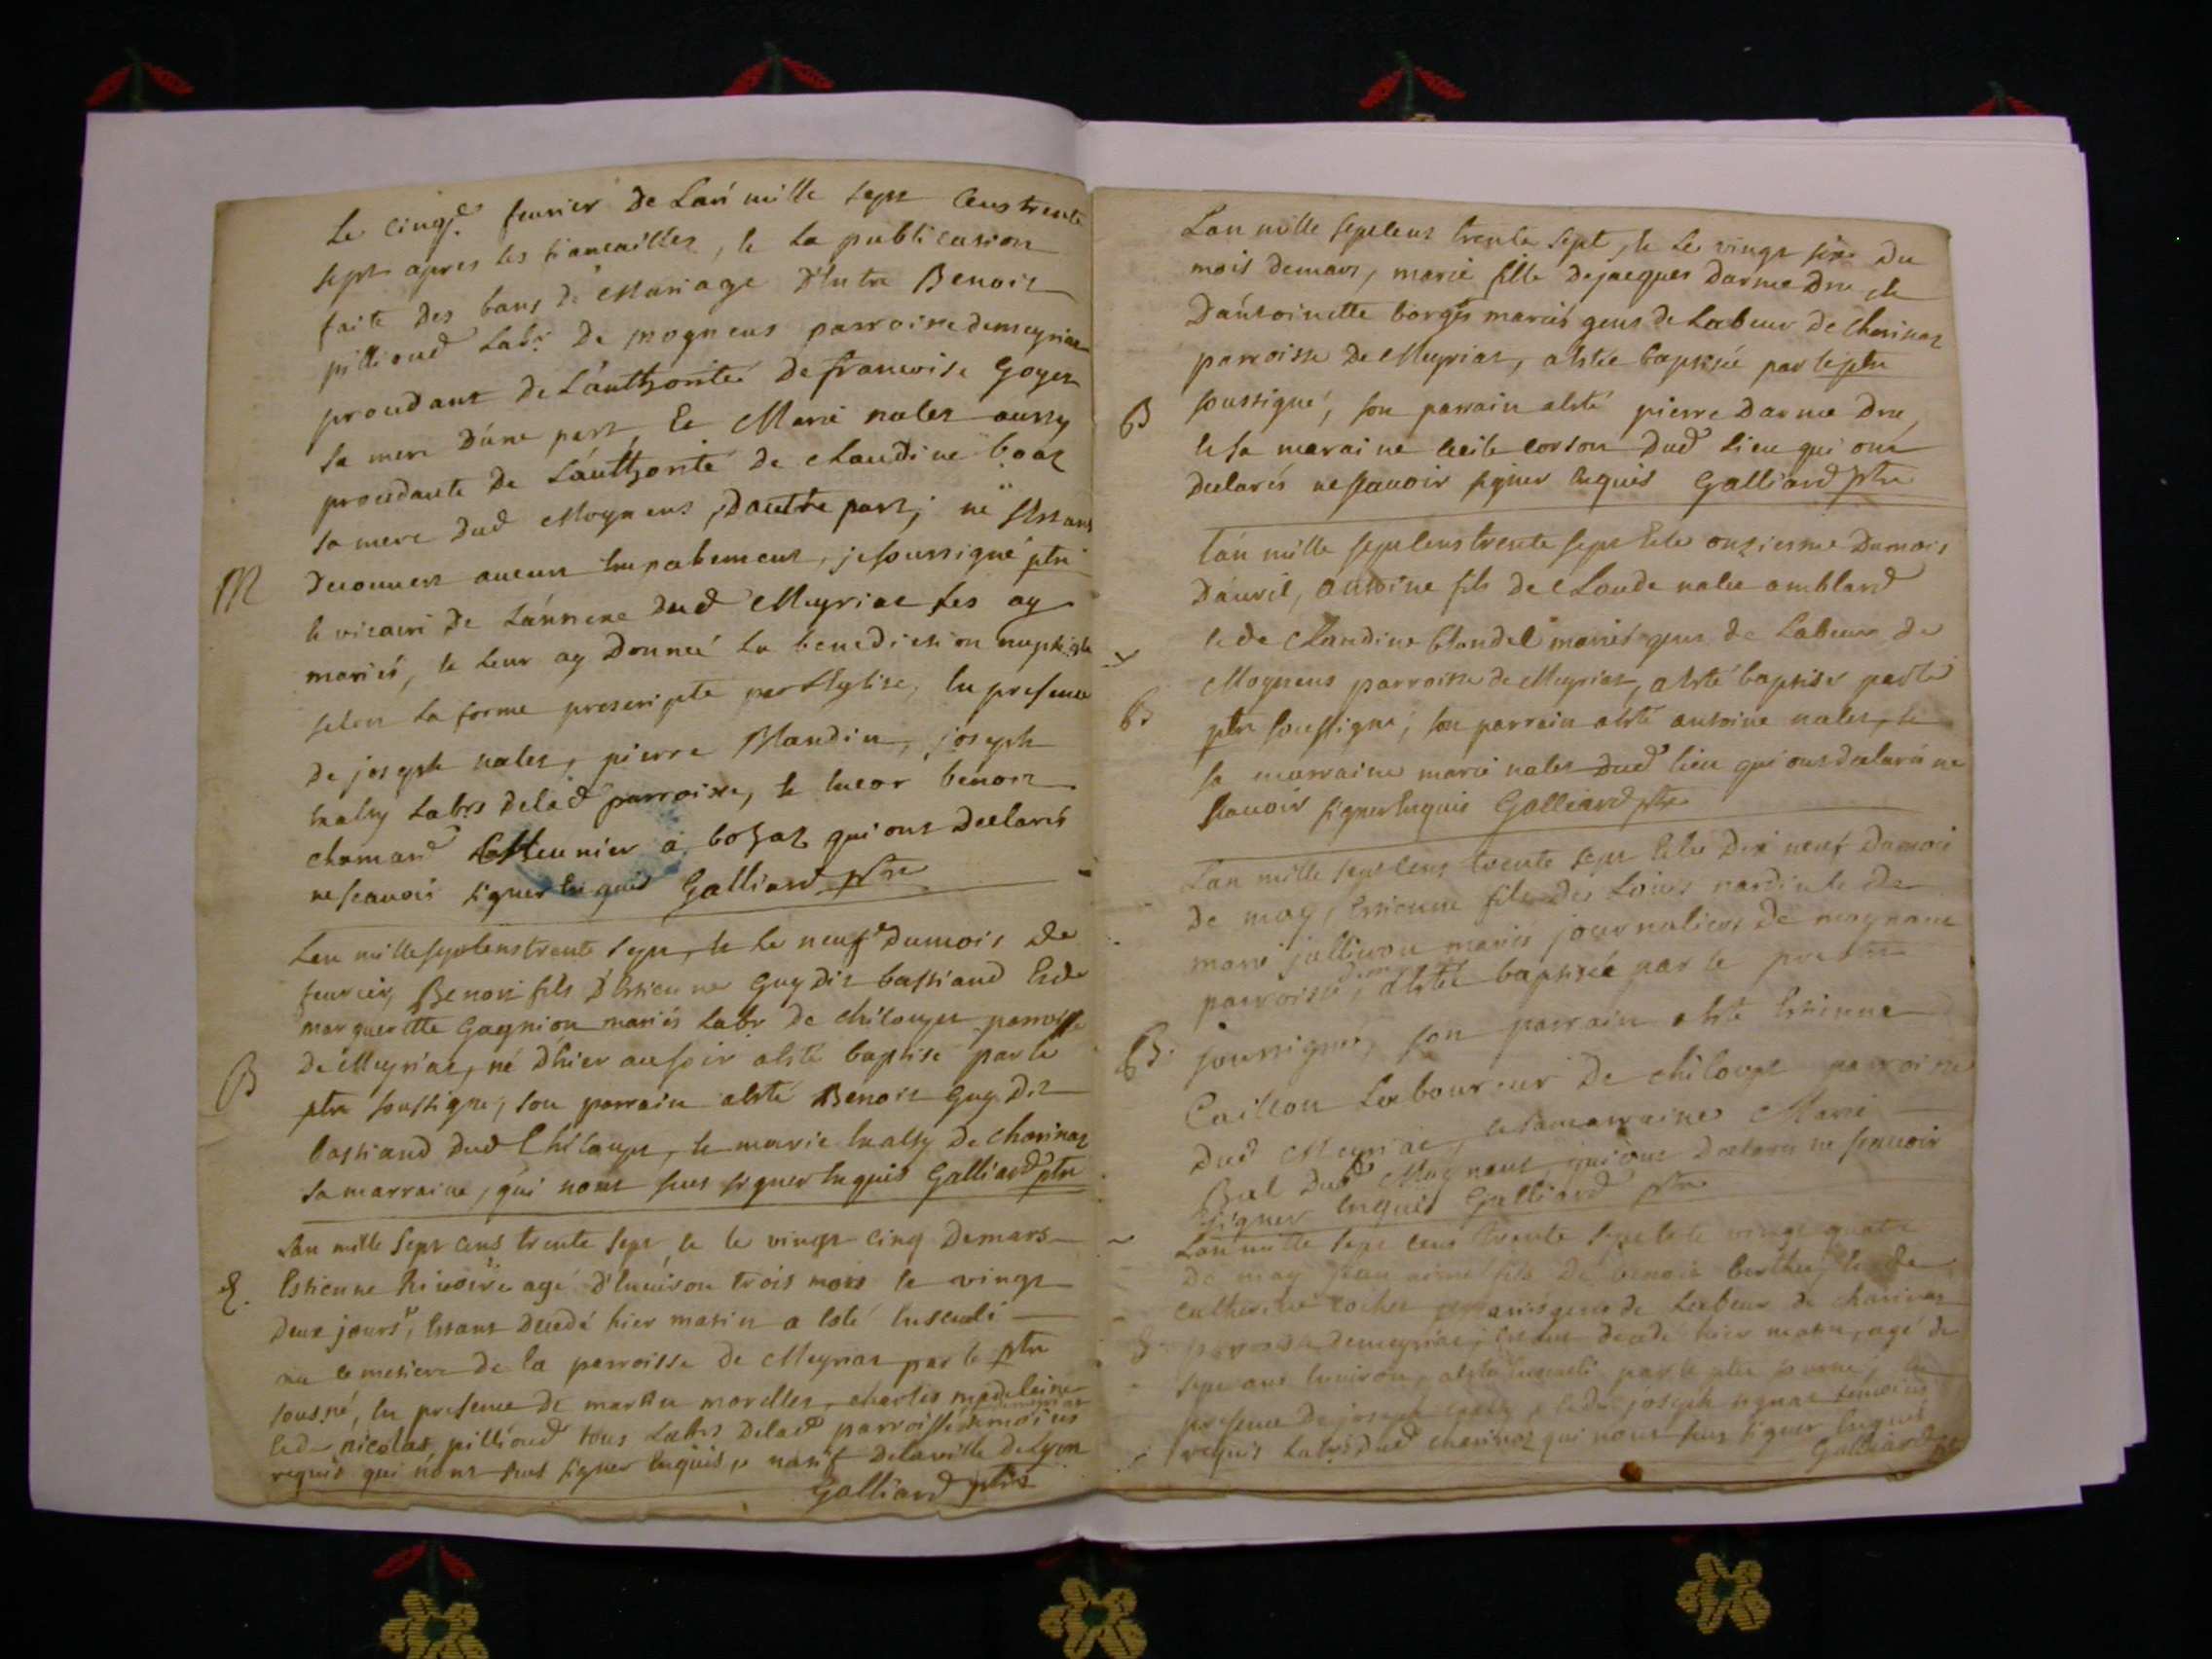 Le cinq.e feuvrier de Lan mille sept cens trente
sept apres les fiancailles, & la publication
faite des bans de Mariage d'Entre Benoit
pillioud Lab.r de mogneus parroisse de meyriae
procedant de L'authorité de francoise Goyet
sa mere d'une part Et Marie nalet aussy
procedante de L'authorité de claudine
sa mere dud Mogneus, d'autre part; ne s'estant
decouvert aucun Empechement, je soussigné ptre
M
& vicaire de L'annexe dud Meyriat les ay
mariés, & leur ay donneé la benediction nuptiale
selon la forme prescripte par l'Eglise, En presence
de joseph nalet, pierre Blandin, joseph
Labrs de lad parroisse, & encor benoit
chamard Meunier a bohaz qui ont declarés
ne scauoir signer Enquis Galliard ptre
Lan mille sept cens trente sept, & le neuf.e du mois de
feuvrier, Benoit fils d'Estienne Guy dit bassiand Et de
marguerite Gagnion mariés Labr de chiloup parroisse
B
de Meyriat, né d'hier au soir a esté baptisé par le
ptre soussigné, son parrain a esté Benoit Guy dit
bassiand dud Chiloup, & marie de charinaz
sa marraine, qui n'ont sceus signer Enquis Galliard ptre
Lan mille sept cens trente sept & le vingt cinq de mars
E.
Estienne agé d'Environ trois mois & vingt
deux jours, Estant decedé hier matin a esté Enseveli
au cemetiere de la parroisse de Meyriat par le ptre
sous.né, En presence de martin morellet, charles madeleine
& de nicolas pillioud tous Labrs de lad parroisse temoins
requis qui n'ont sceus signer Enquis, natif de la ville de Lyon
Galliard ptre
Lan mille sept cens trente sept, & le vingt six du
mois de mars, marie fille de jacques darmedru &
d'antoinette borges mariés gens de Labeur de charinaz
parroisse de Meyriat, a estée baptisée par le ptre
B
soussigné, son parrain a esté pierre darmedru,
& sa maraine cecile corton dud lieu qui ont
declarés ne scauoir signer Enquis Galliard ptre
Lan mille sept cens trente sept & le onziesme du mois
d'auril, antoine fils de claude nalet amblard
& de claudine blondel mariés gens de Labeur de
Mogneus parroisse de Meyriat, a esté baptisé par le
B.
ptre soussigné, son parrain a esté antoine nalet, &
sa marraine marie nalet dud lieu qui ont declaré ne
scauoir signer Enquis Galliard ptre
Lan mille sept cens trente sept & le dix neuf du mois
de may, Estienne fils de Loüis nardin & de
marie jallieron mariés journaliers de mogneus
parroisse, a estée baptisée par le pretre
B.
soussigné, son parrain a esté Estienne
Caillon Laboureur de chiloup parroisse
dud Meyriat, & sa marraine Marie
Bal dud Mogneus, qui ont declaré ne scauoir
signer Enquis Galliard ptre
Lan mille sept cens trente sept & le vingt quatre
de may, fils de benoit berthet, & de
catherine mariés gens de Labeur de charinaz
parroisse de meyriat, Estant decedé hier matin, agé de
sept ans Environ, a esté Enseveli par le ptre sousné, En
presence de joseph & de joseph temoins
requis Labrs dud charinaz qui n'ont sceus signer Enquis
Galliard ptre